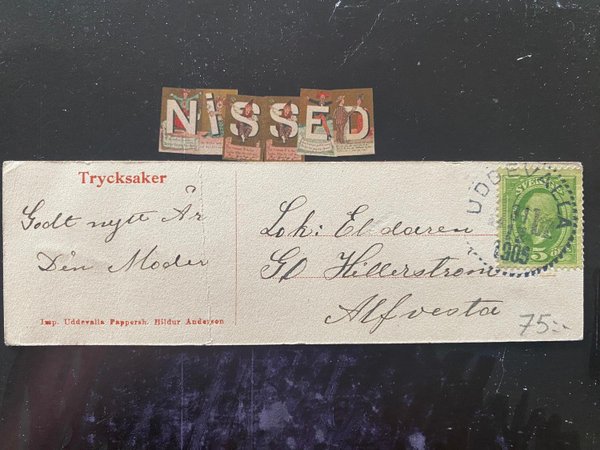 NiSSED
Trycksaker
Godt nytt År
Din Moder
Imp. Uddevalla Pappersh. Hildur Anderson
Lok: Eldaren
G Hillerström
Alfvesta
UDDEVALLA
1905
SVERIGE
5
75:-